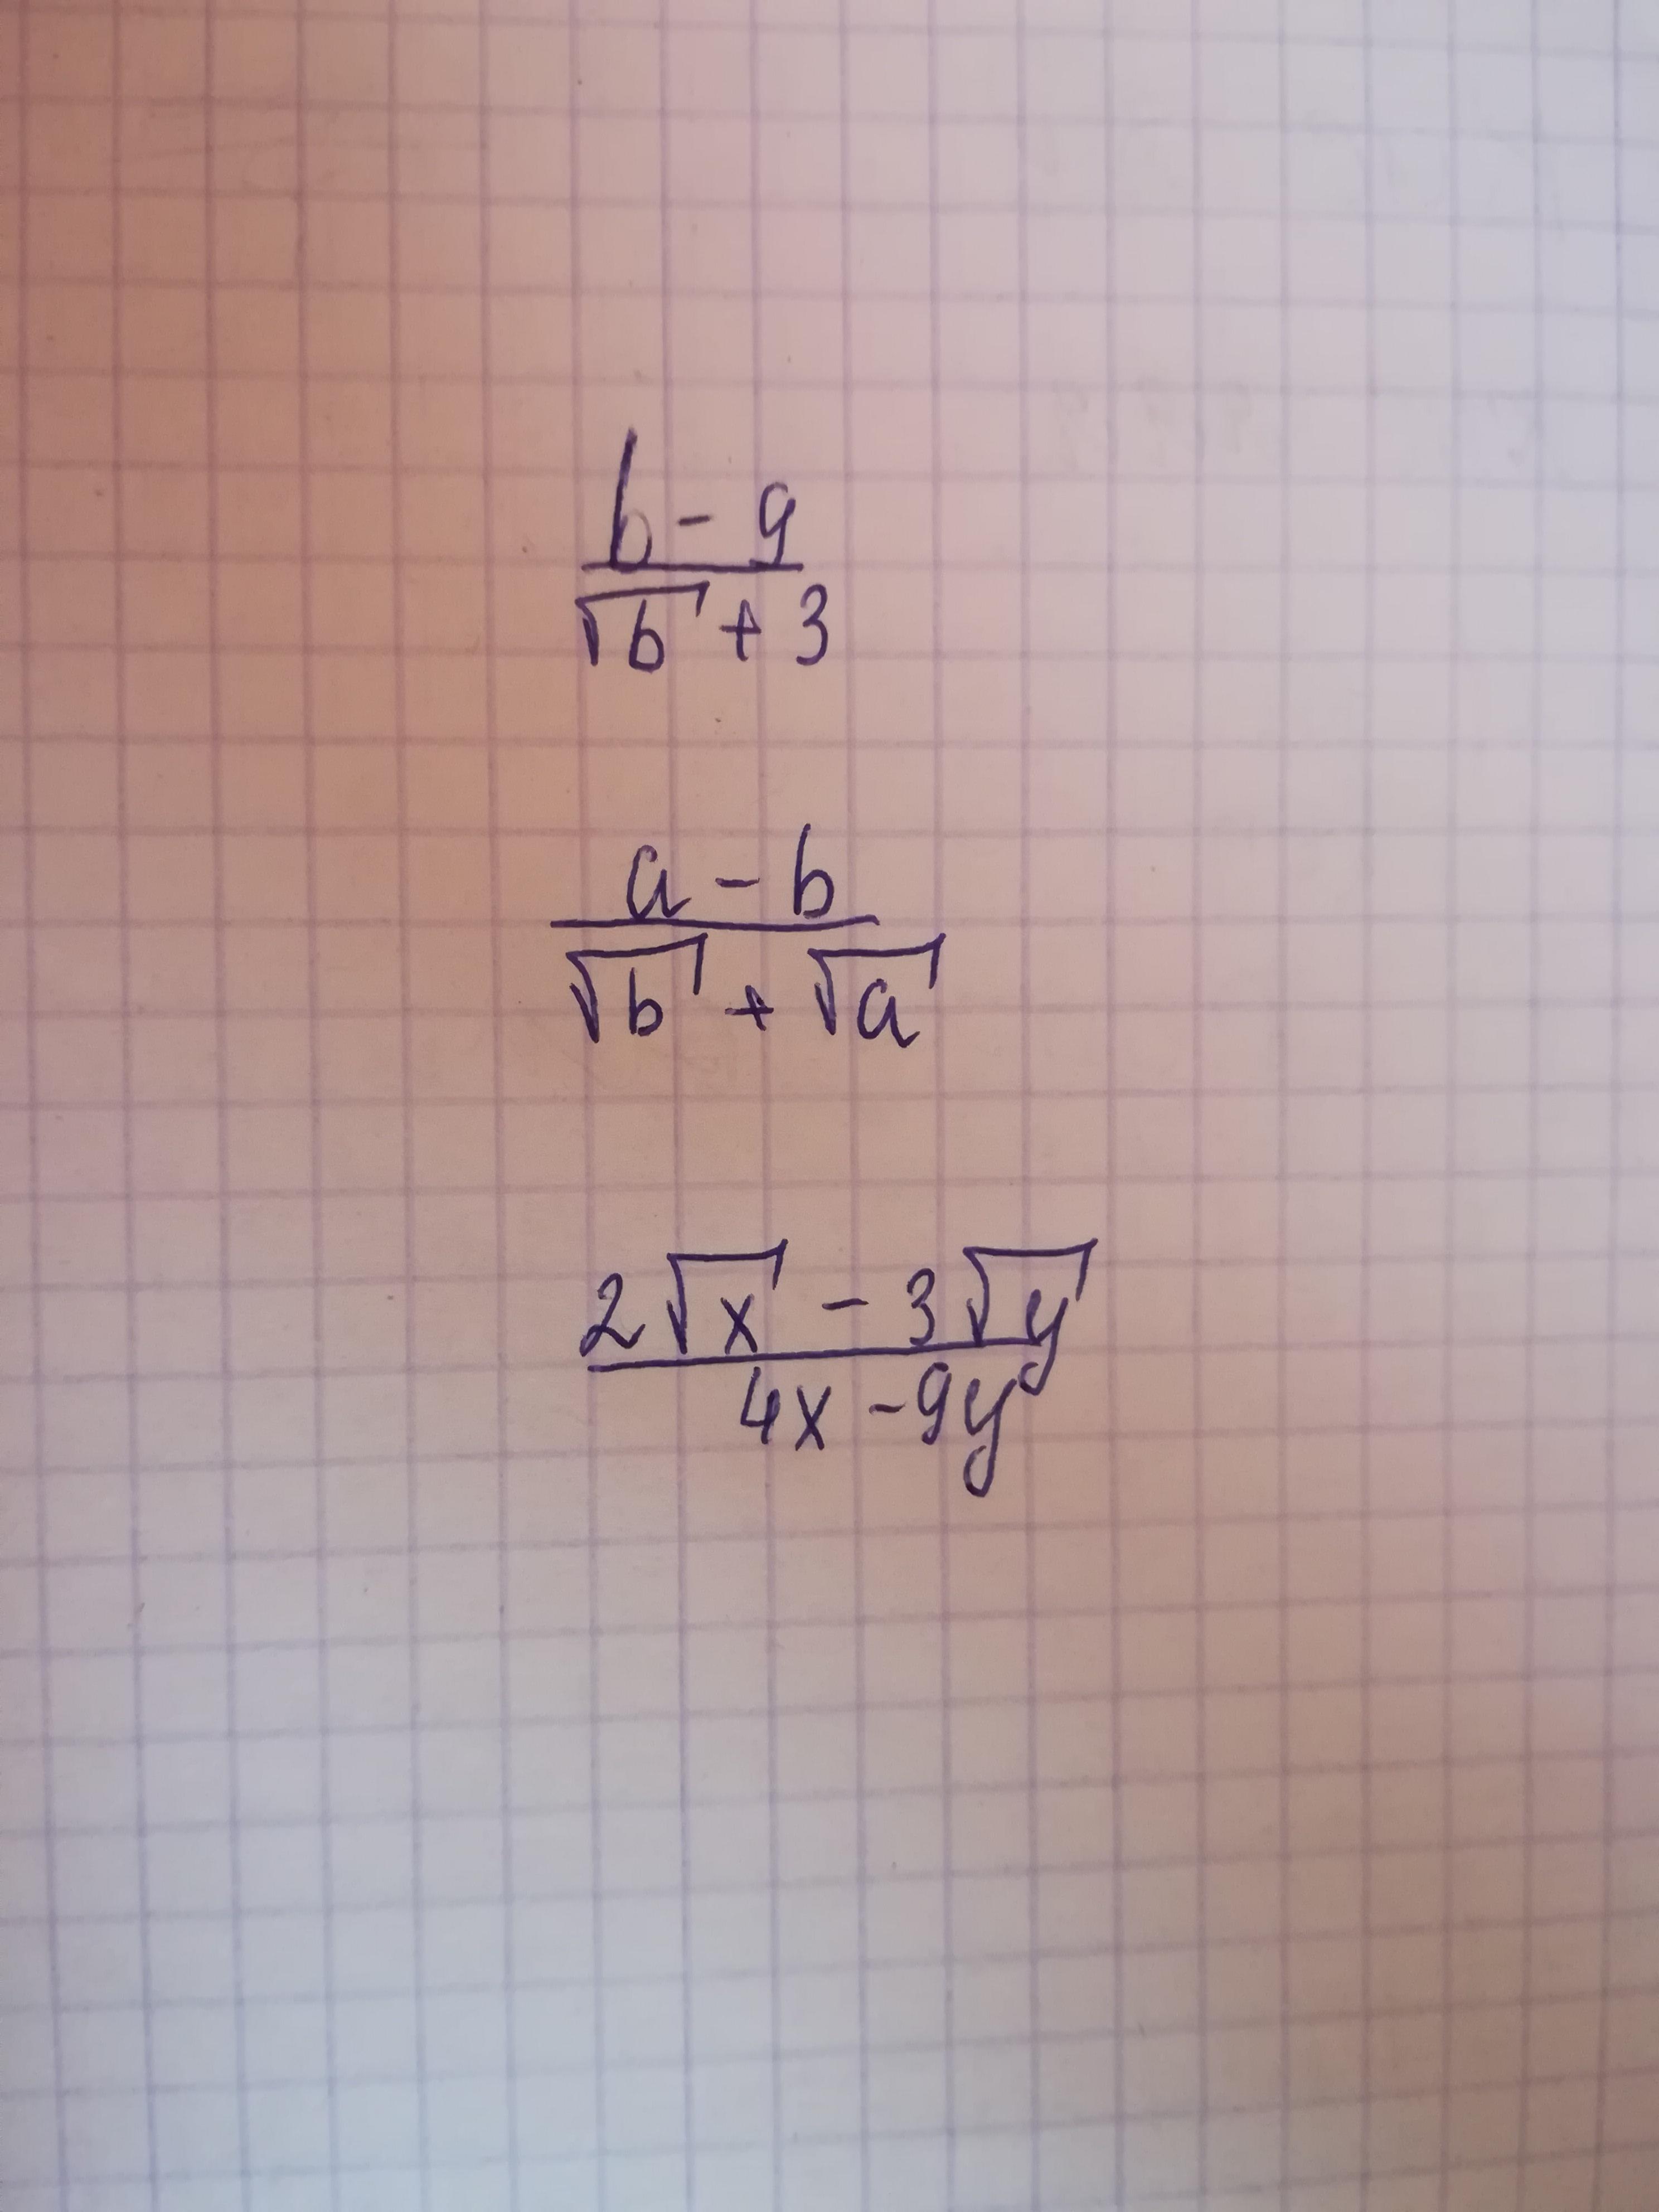 b - 9
√b + 3
a - b
√b + √a
2√x - 3√y
4x - 9y